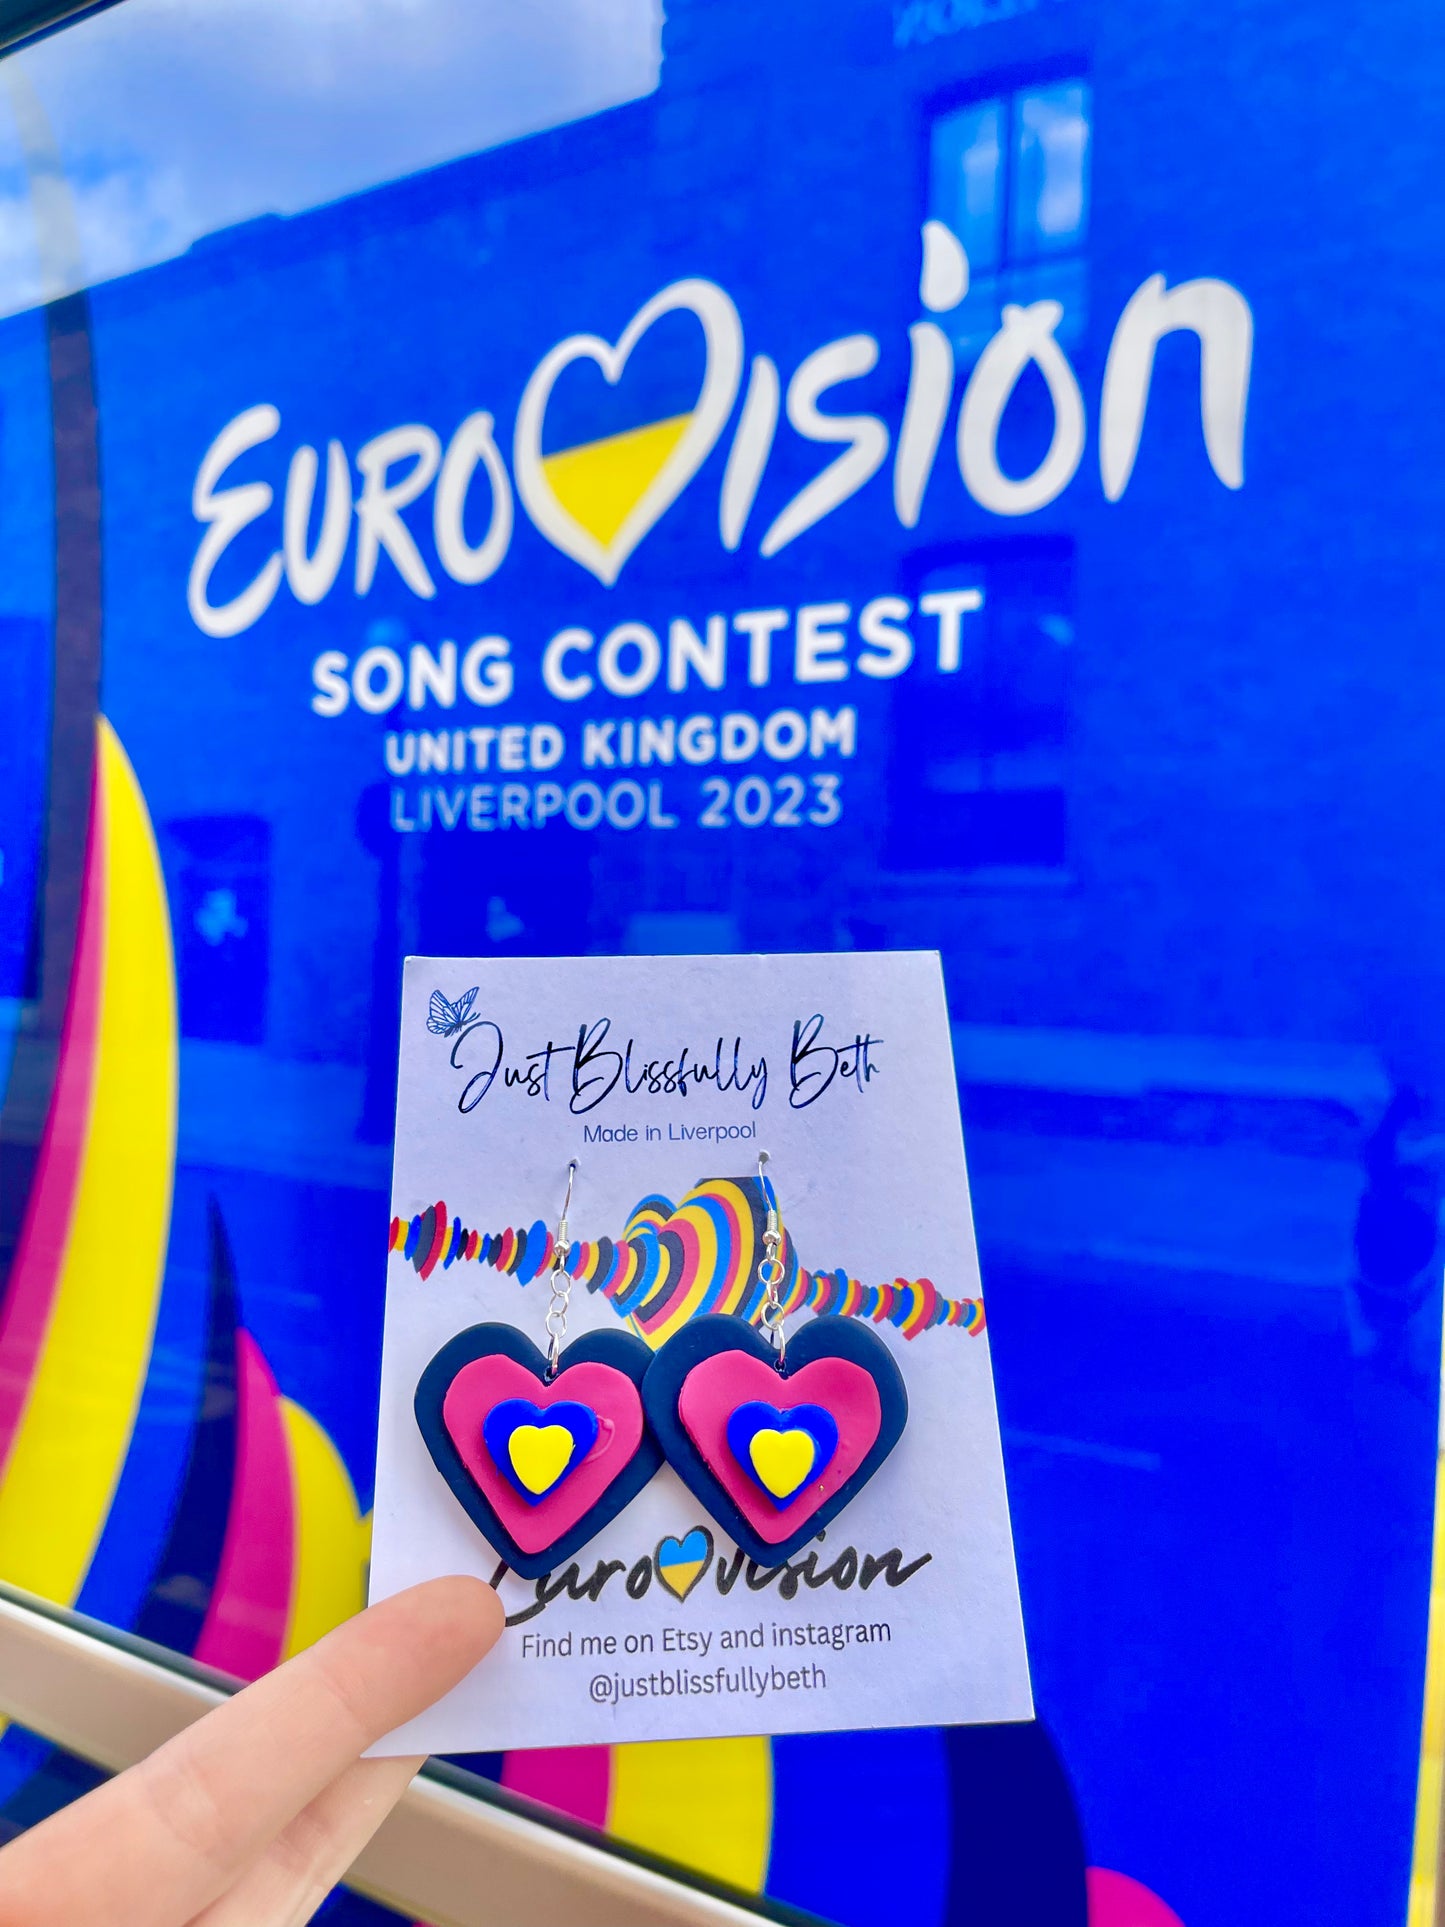 EUROVISION
SONG CONTEST
UNITED KINGDOM
LIVERPOOL 2023
Just Blissfully Beth
Made in Liverpool
Eurovision
Find me on Etsy and instagram
@justblissfullybeth